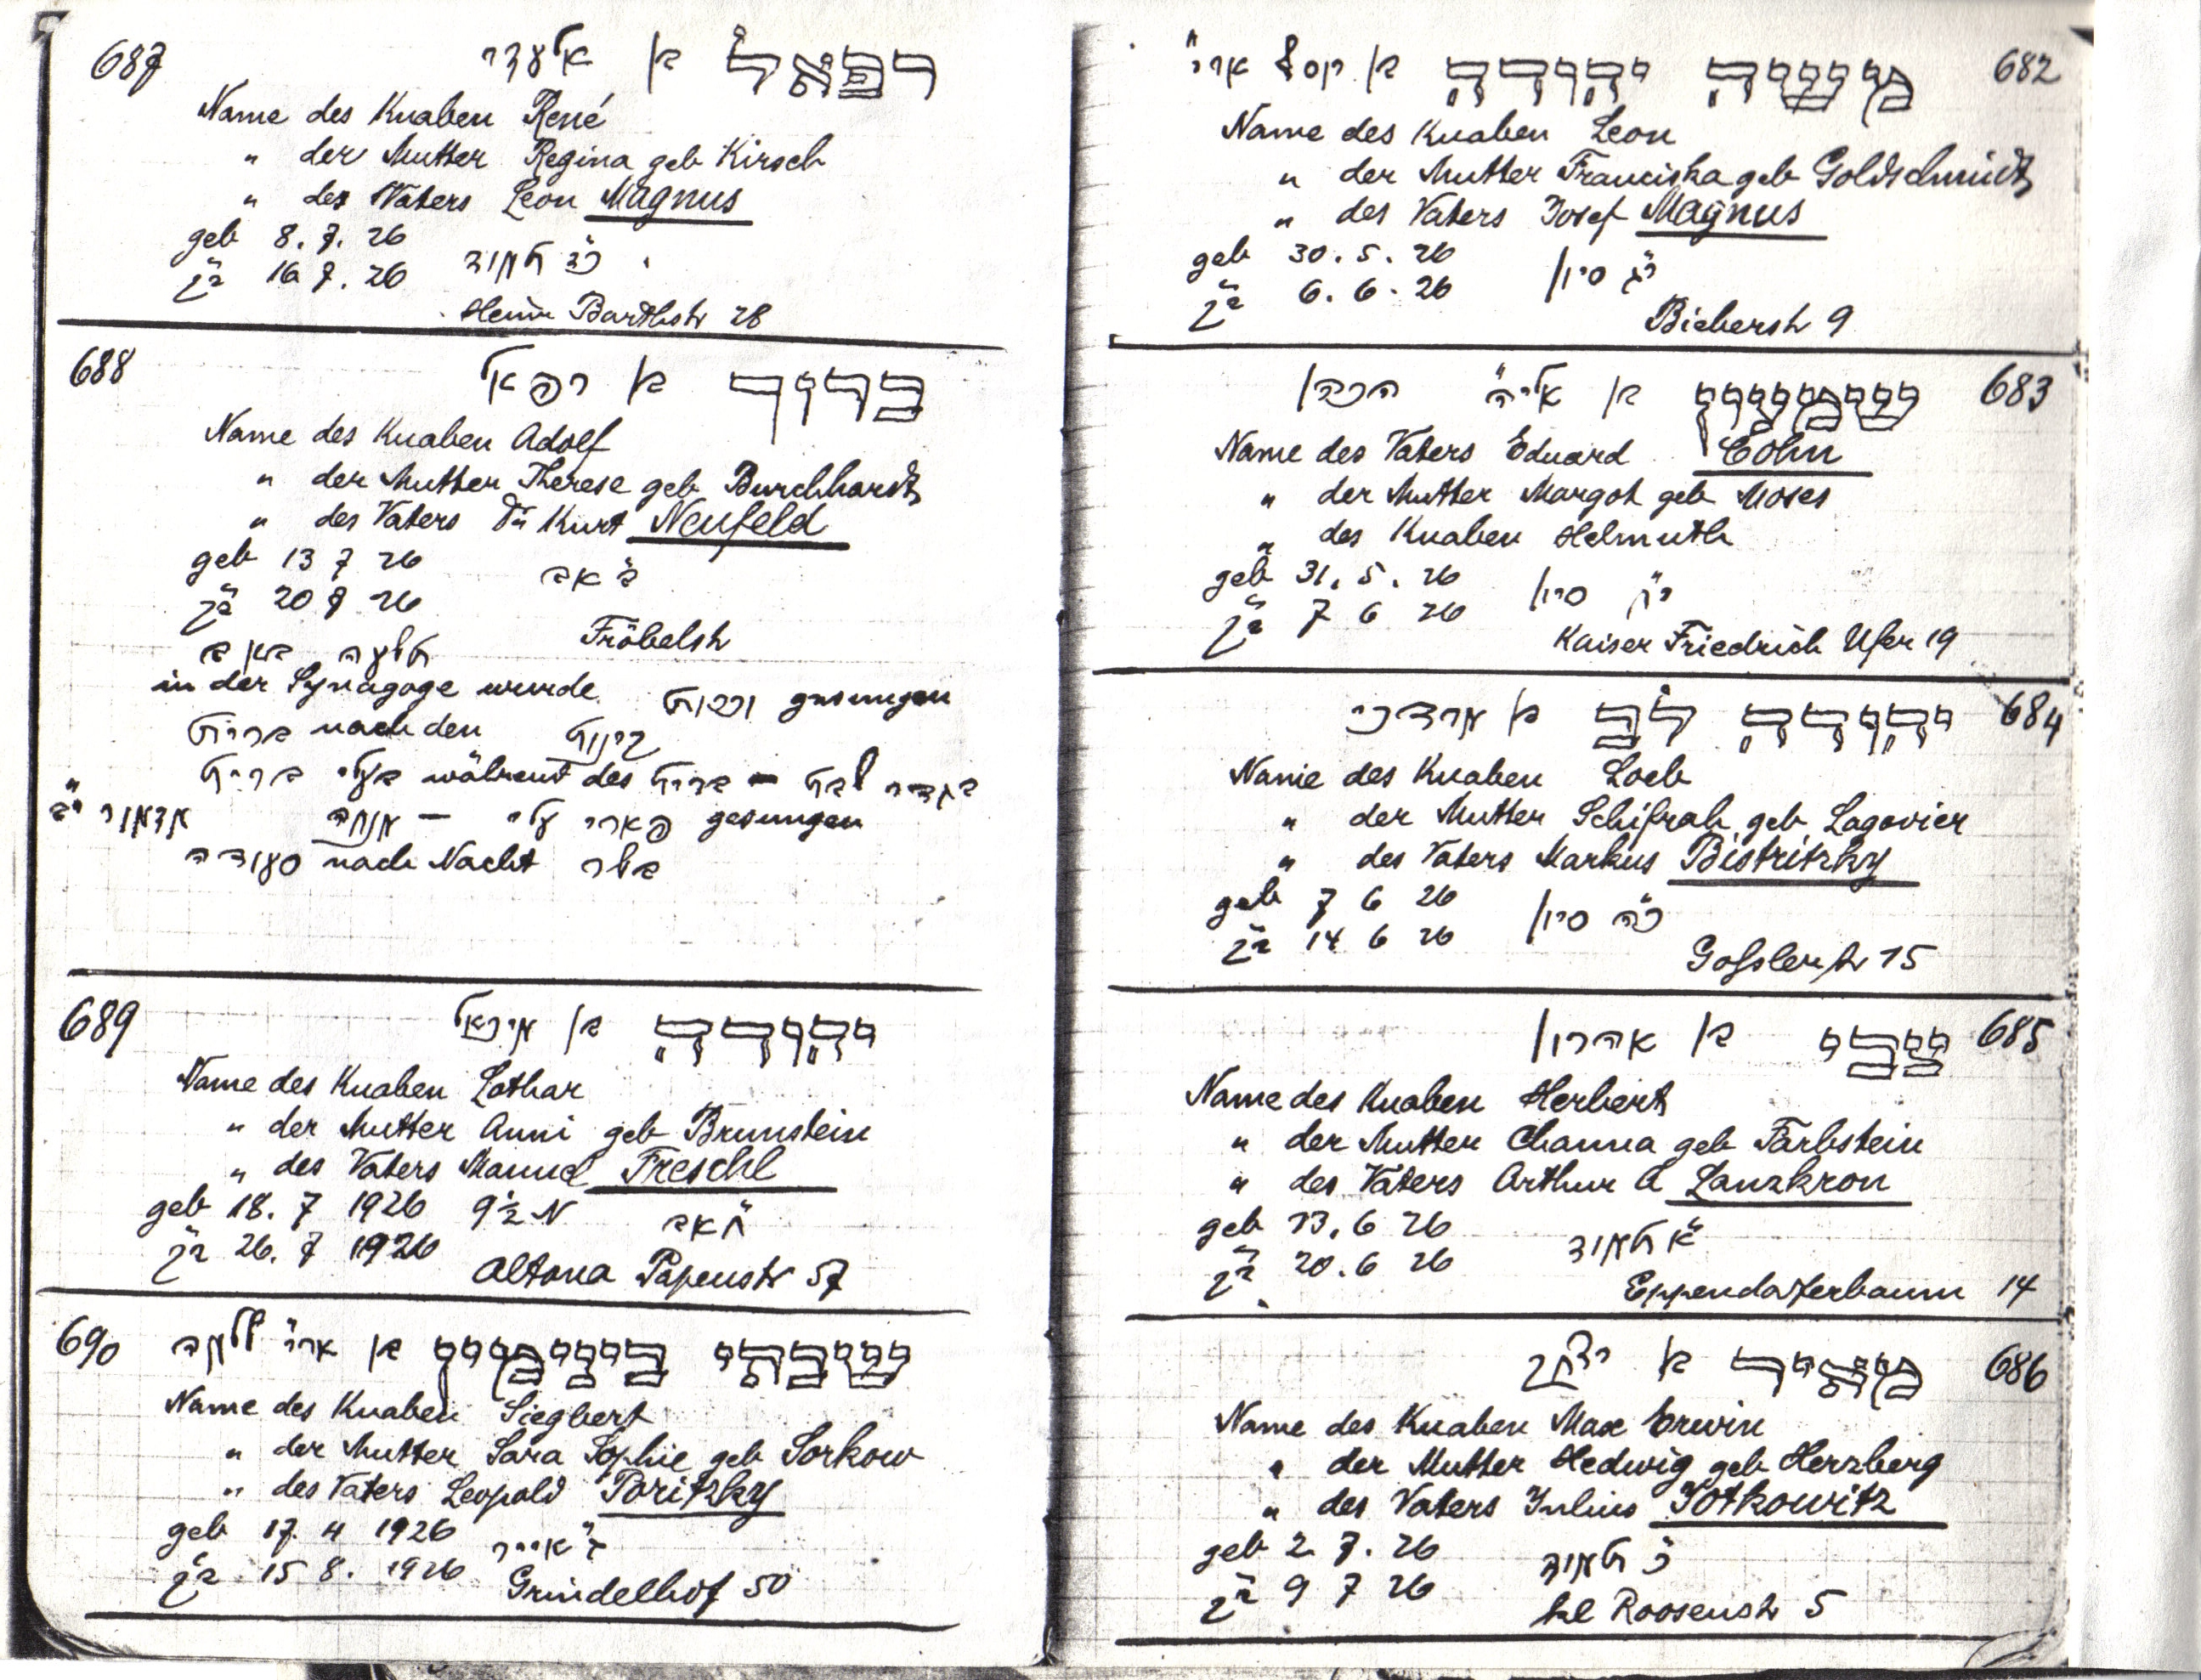 682 משה יהודה בן יוסף ארי׳
Name des Knaben Leon
" der Mutter Franciska geb Goldschmidt
" des Vaters Josef Magnus
geb 30. 5. 26
6. 6. 26 סיון
Bieberstr 9
683 שמעון בן אלי׳ הכהן
Name des Vaters Eduard Cohn
" der Mutter Margot geb Moses
" des Knaben Helmuth
geb 31. 5. 26
7 6 26 סיון
Kaiser Friedrich Ufer 19
684 יהודה לב בן מרדכי
Name des Knaben Loeb
" der Mutter Schifrah geb Lagovier
" des Vaters Markus Bistritzky
geb 7 6 26
14 6 26 כ״ה סיון
Goßlerstr 15
685 צבי בן אהרון
Name des Knaben Herbert
" der Mutter Channa geb Färbstein
" des Vaters Arthur A Lanzkron
geb 13. 6 26
20. 6 26 תמוז
Eppendorferbaum 14
686 מאיר בן יצחק
Name des Knaben Max Erwin
" der Mutter Hedwig geb Herzberg
" des Vaters Julius Jotkowitz
geb 2. 7. 26
9 7 26 תמוז
kl Roosenstr 5
687 רפאל בן אלעזר
Name des Knaben René
" der Mutter Regina geb Kirsch
" des Vaters Leon Magnus
geb 8. 7. 26
16 7. 26 תמוז
Bartlstr 28
688 ברוך בן רפאל
Name des Knaben Adolf
" der Mutter Therese geb Burchhardt
" des Vaters Dr Kurt Neufeld
geb 13 7 26
20 7 26 אב
Fröbelstr
באב
in der Synagoge wurde gesungen
ברית nach den קינות
ברית während des ברית
gesungen
סעודה nach Nacht
689 יהודה בן מיכאל
Name des Knaben Lothar
" der Mutter Anni geb Brunstein
" des Vaters Manuel Freschl
geb 18. 7 1926 9½ N
26. 7 1926 אב
Altona Papenstr 57
690 שבתי בנימין בן ארי׳ שלמה
Name des Knaben Siegbert
" der Mutter Sara Sophie geb Sorkow
" des Vaters Leopold Poritzky
geb 17. 4 1926
15 8. 1926 אייר
Grindelhof 50